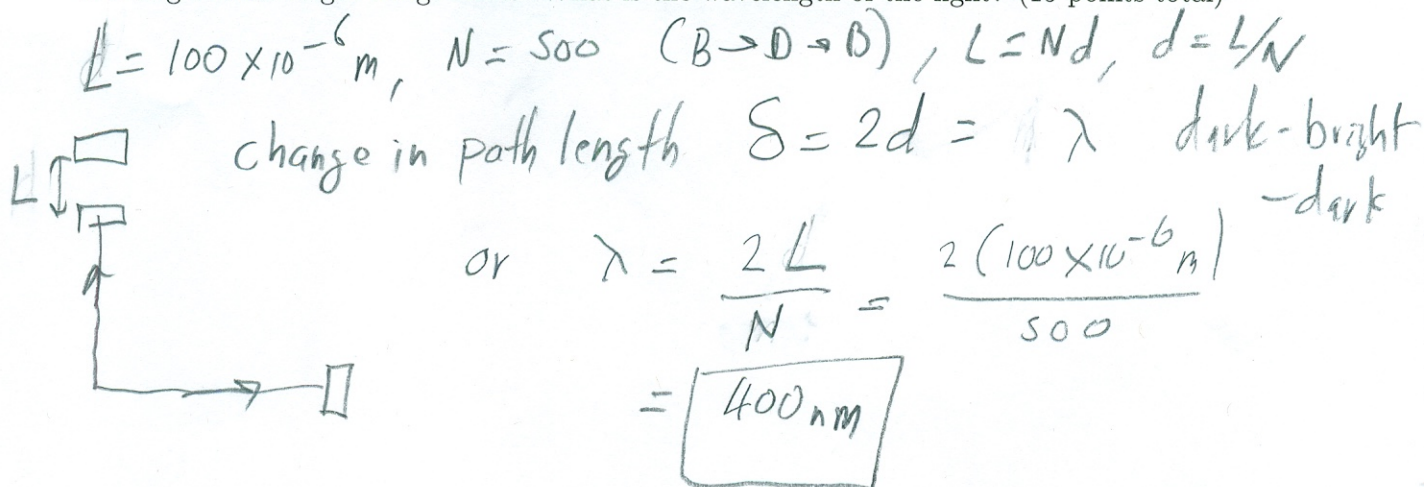 L = 100 × 10⁻⁶ m, N = 500 (B→D→B), L = Nd, d = L/N
change in path length δ = 2d = λ dark-bright
-dark
L
or λ = 2L/N = 2(100×10⁻⁶ m)/500
= 400 nm